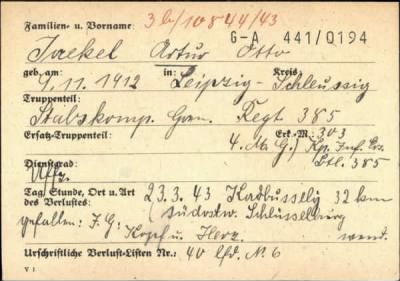 Familien- u. Vorname: 3 b/10844/43
G-A 441/0194
Jaekel Artur Otto
geb. am: in: Kreis:
9.11.1912 Leipzig-Schleussig
Truppenteil:
Stabskomp. Gren. Regt 385
Ersatz-Truppenteil: Erk.-M.: 303
4. M.G.) Kp. Inf. Ers.
Dienstgrad: Btl. 385
Uffz.
Tag, Stunde, Ort u. Art des Verlustes: 23.3.43 32 km
südostw. Schlüsselburg
gefallen: J.G:
Kopf u. Herz
Urschriftliche Verlust-Listen Nr.: 40 lfd. N. 6
V 1